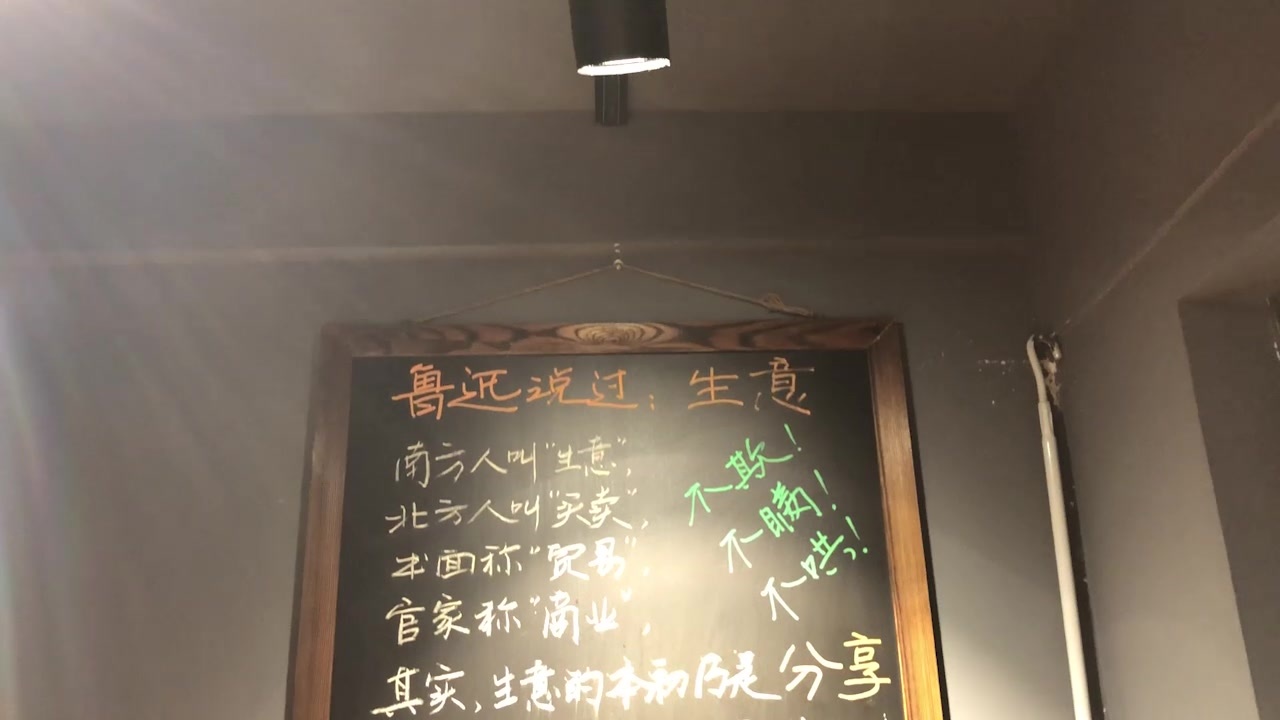 鲁迅说过：生意
南方人叫“生意”，
北方人叫“买卖”，
书面称“贸易”，
官家称“商业”，
其实，生意的本初乃是分享
不欺！
不瞒！
不哄！